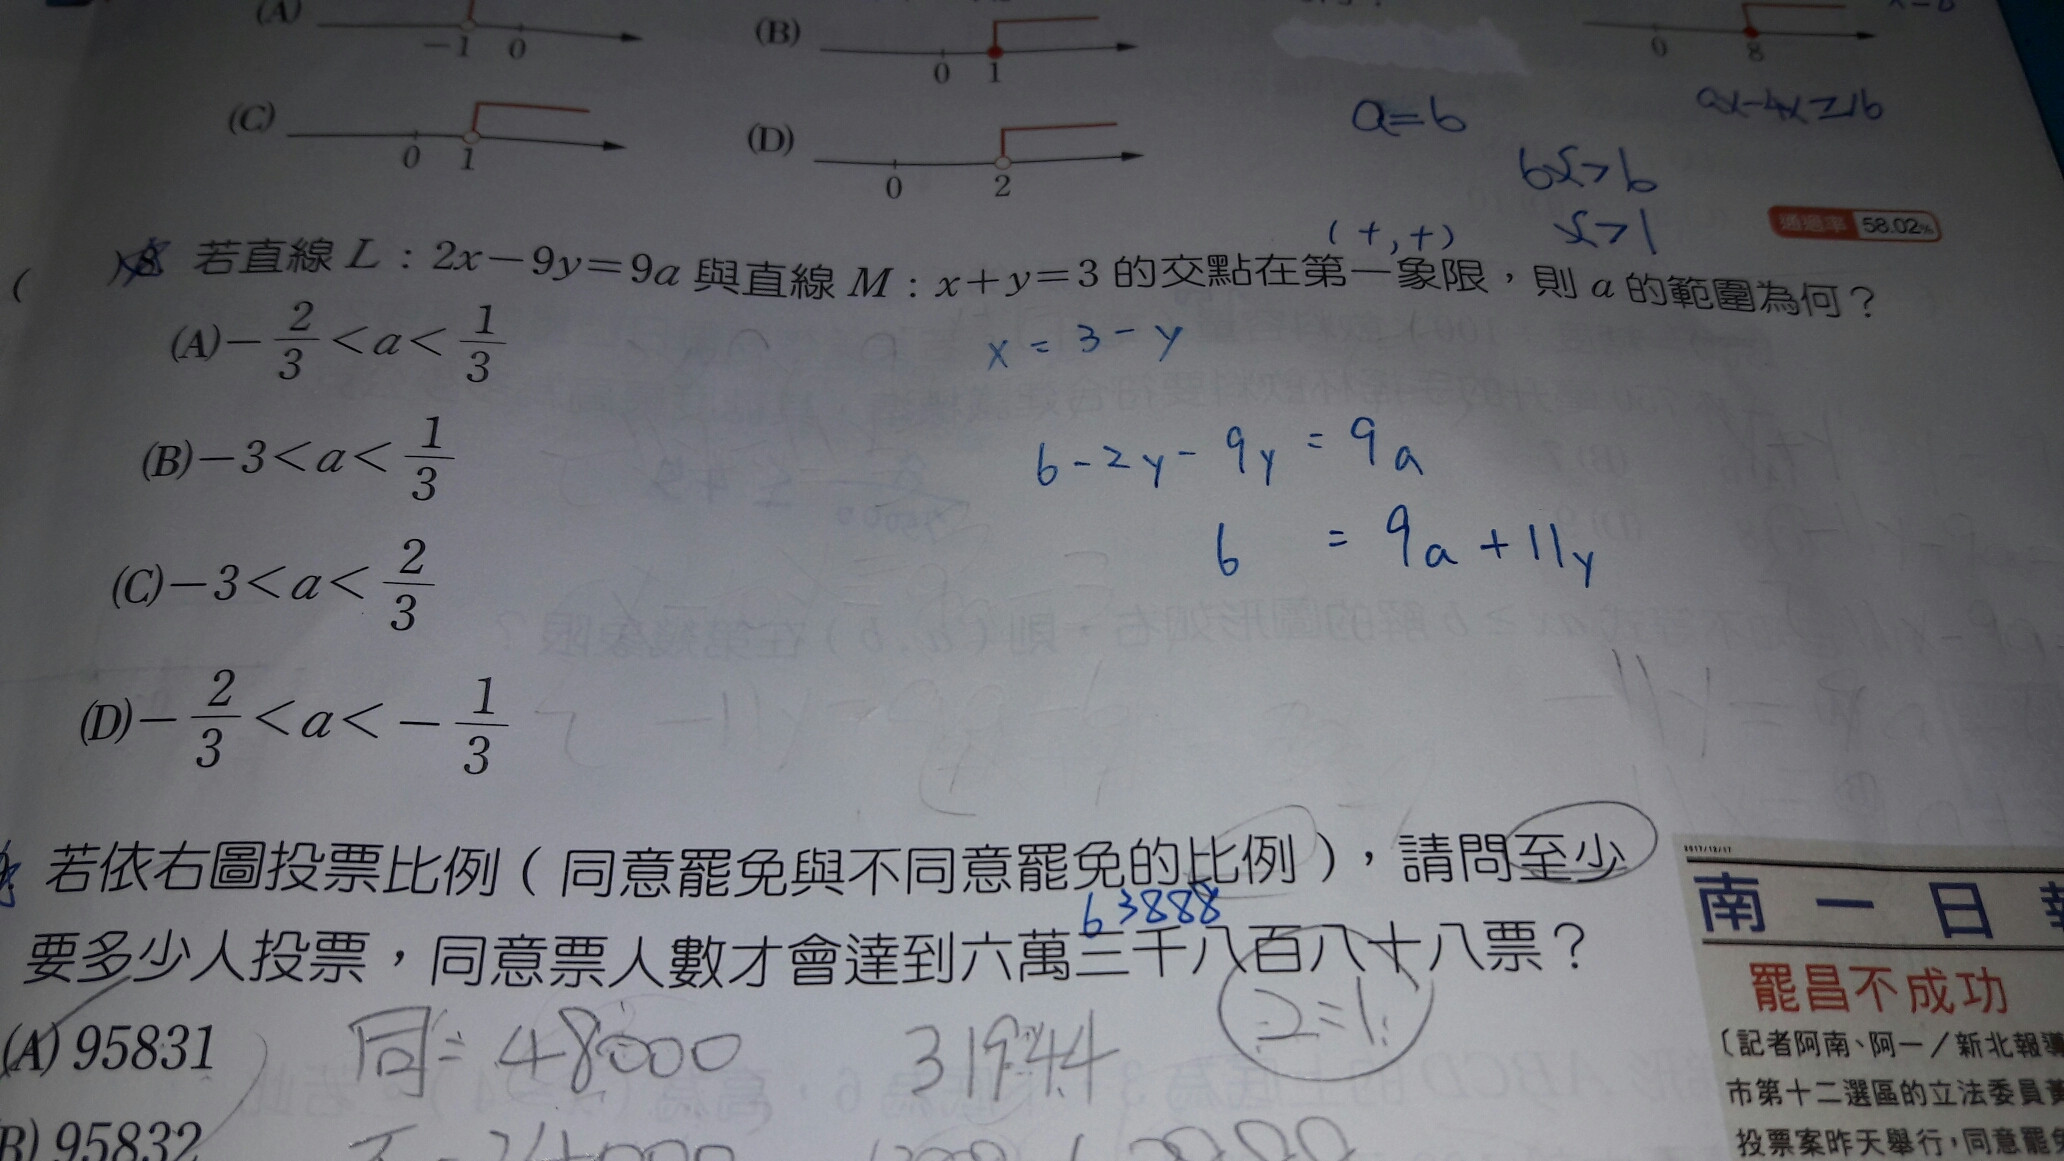 (A)
-1 0
(B)
0 1
0 8
(C)
0 1
(D)
0 2
a=b
6x>6
x>1
通過率 58.02%
(+,+)
若直線 L：2x－9y＝9a 與直線 M：x+y＝3 的交點在第一象限，則 a 的範圍為何？
(A)－2/3＜a＜1/3
x = 3 - y
(B)－3＜a＜1/3
6-2y-9y = 9a
6 = 9a + 11y
(C)－3＜a＜2/3
(D)－2/3＜a＜－1/3
若依右圖投票比例（同意罷免與不同意罷免的比例），請問至少
63888
要多少人投票，同意票人數才會達到六萬三千八百八十八票？
2=1
(A) 95831
同= 48000
31944
(B) 95832
2017/12/17
南一日
罷昌不成功
〔記者阿南、阿一／新北報導
市第十二選區的立法委員黃
投票案昨天舉行，同意罷免